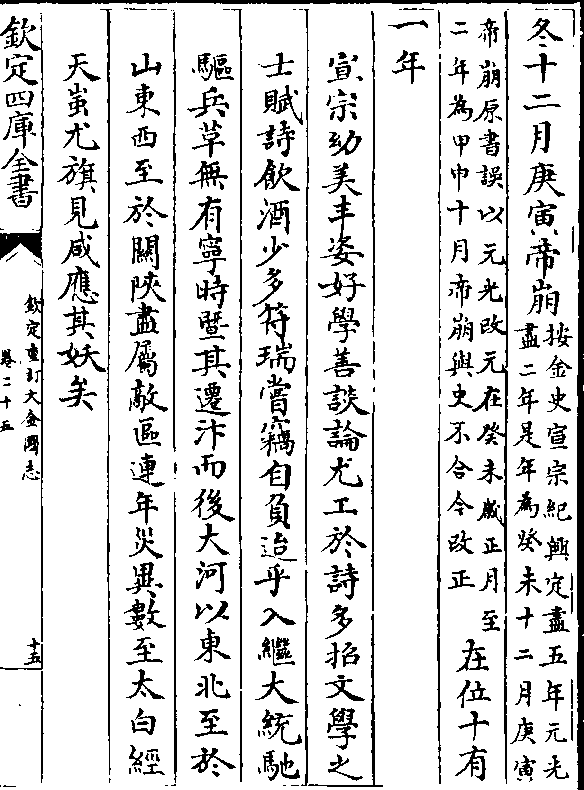 冬十二月庚寅帝崩按金史宣宗紀興定盡五年元光
盡二年是年為癸未十二月庚寅
帝崩原書誤以元光改元在癸未歲正月至
二年為甲申十月帝崩與史不合今改正在位十有
一年
宣宗幼美丰姿好學善談論尤工於詩多招文學之
士賦詩飲酒少多符瑞嘗竊自負迨乎入繼大統馳
驅兵革無有寧時暨其遷汴而後大河以東北至於
山東西至於關陝盡屬敵區連年災異數至太白經
天蚩尤旗見咸應其妖矣
欽定四庫全書
欽定重訂大金國志
卷二十五
十五